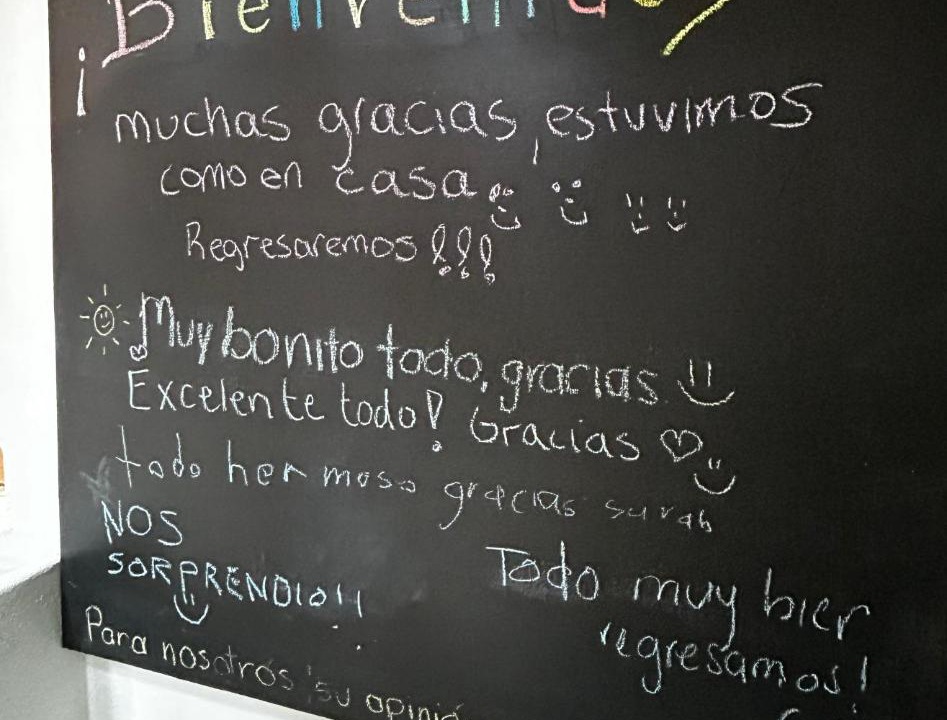 ¡Bienvenido
muchas gracias, estuvimos
como en casa
Regresaremos!!!
Muy bonito todo, gracias
Excelente todo! Gracias
todo hermoso gracias sarah
NOS
SORPRENDIO!!
Todo muy bien
regresamos!
Para nosotros su opinió